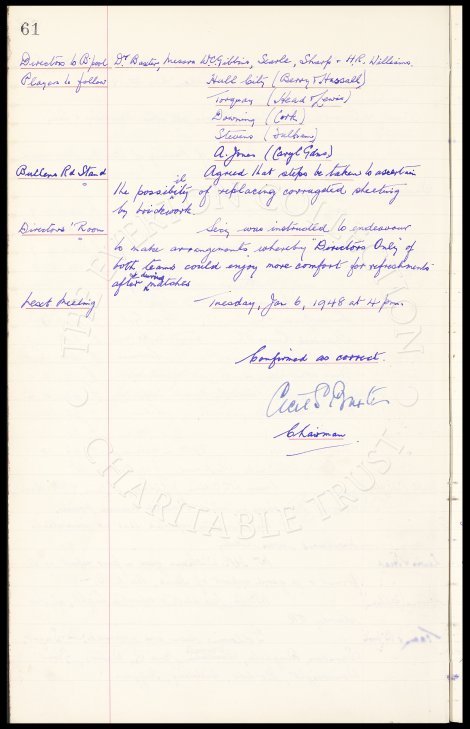 61
Directors to B'pool Dr Baxter, Messrs McGibbins, Searle, Sharp & H.R. Williams.
Players to follow Hull City (Berry & Hassall)
Torquay (Head & Lewis)
Downing (Cork)
Stevens (Fulham)
A. Jones (Caryl Gdns)
Bullens Rd Stand Agreed that steps be taken to ascertain
the possibility of replacing corrugated sheeting
by brickwork.
Directors' Room Secy was instructed to endeavour
to make arrangements whereby "Directors Only" of
both teams could enjoy more comfort for refreshments
after & during matches
Next Meeting Tuesday, Jan 6, 1948 at 4 pm.
Confirmed as correct.
Cecil S Baxter
Chairman
CHARITABLE TRUST